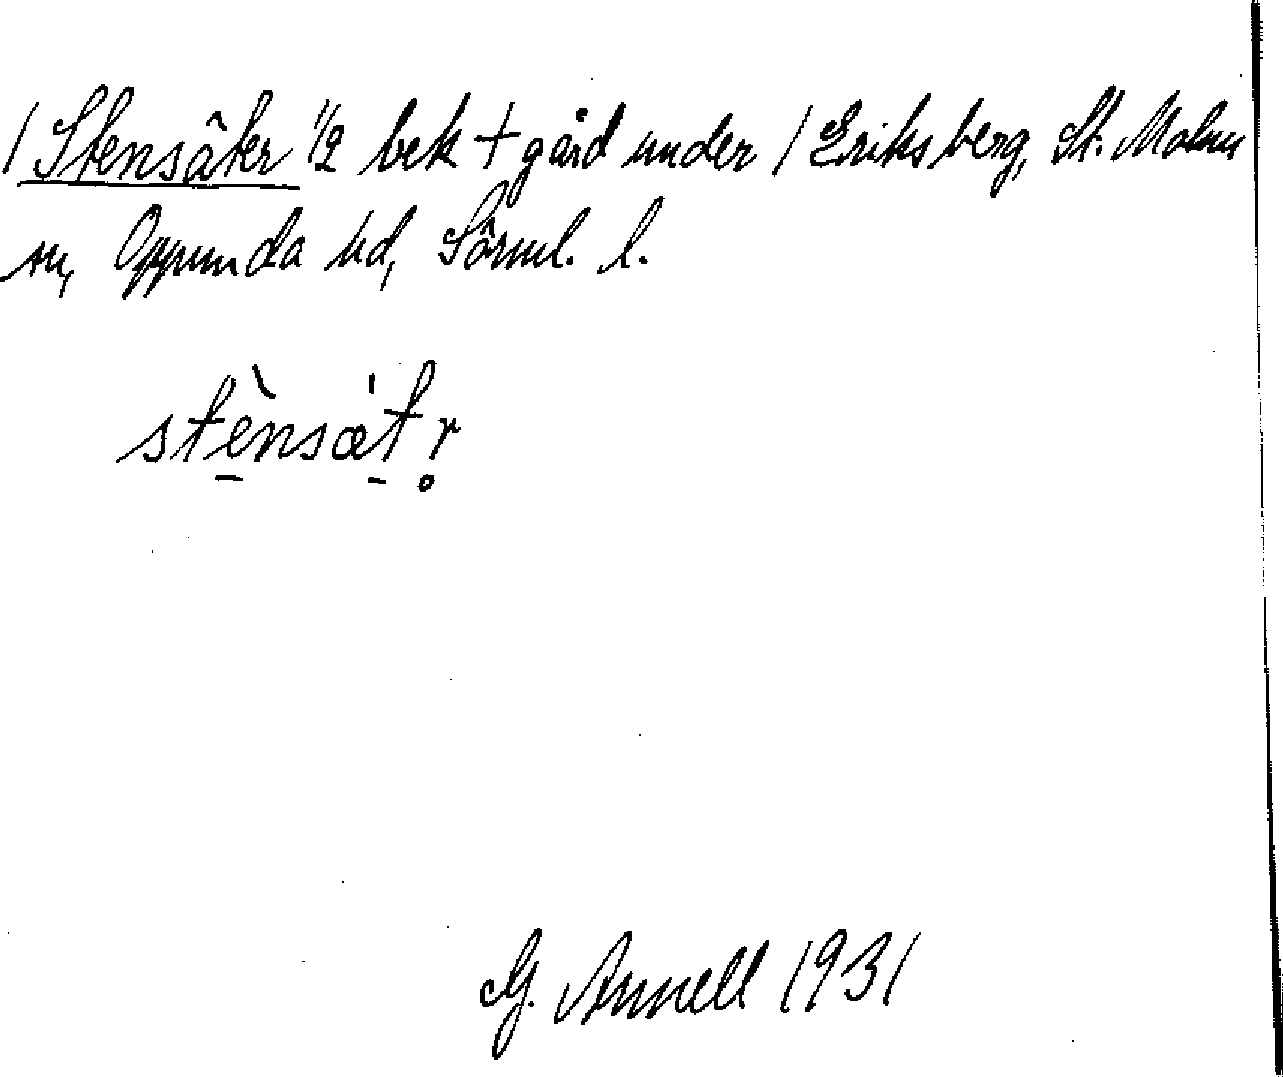 / Stensäter 1/2 bek + gård under / Eriksberg, St. Malm
sn, Oppunda hd, Sörml. l.
stè̠nsæ̠̍tr̥
G. Annell 1931